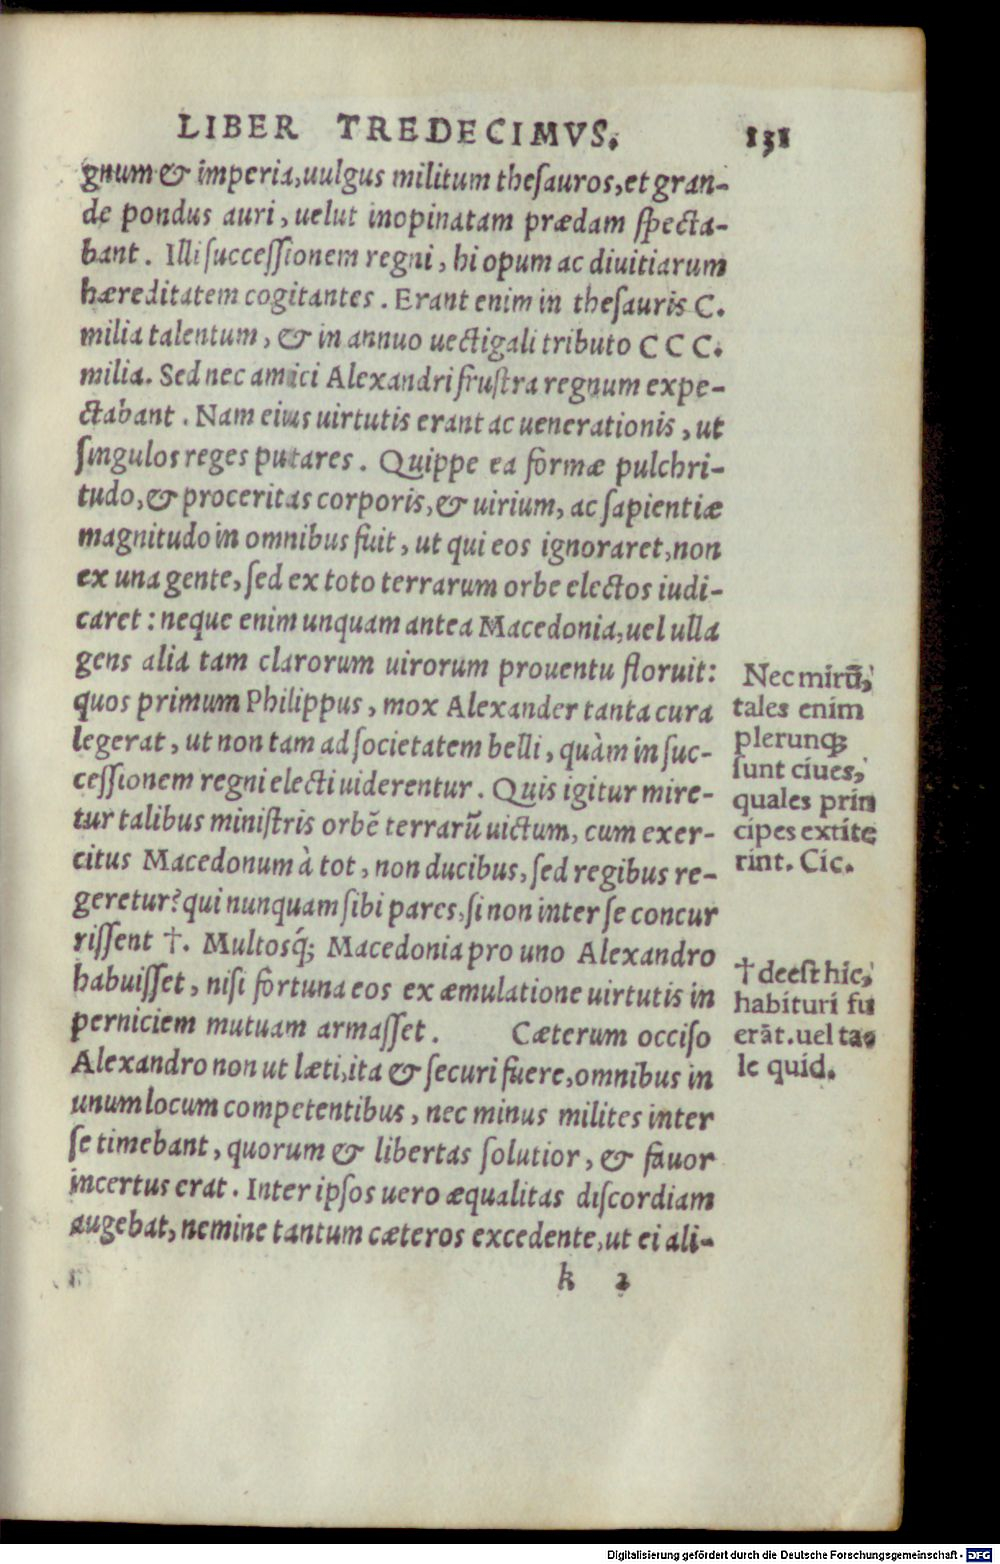 LIBER TREDECIMVS. 131
gnum & imperia, uulgus militum theſauros, et gran-
de pondus auri, uelut inopinatam prædam ſpecta-
bant. Illi ſucceſſionem regni, hi opum ac diuitiarum
hæreditatem cogitantes. Erant enim in theſauris C.
milia talentum, & in annuo uectigali tributo C C C.
milia. Sed nec amici Alexandri fruſtra regnum expe-
ctabant. Nam eius uirtutis erant ac uenerationis, ut
ſingulos reges putares. Quippe ea formæ pulchri-
tudo, & proceritas corporis, & uirium, ac ſapientiæ
magnitudo in omnibus fuit, ut qui eos ignoraret, non
ex una gente, ſed ex toto terrarum orbe electos iudi-
caret: neque enim unquam antea Macedonia, uel ulla
gens alia tam clarorum uirorum prouentu floruit:
quos primum Philippus, mox Alexander tanta cura
legerat, ut non tam ad ſocietatem belli, quàm in ſuc-
ceſſionem regni electi uiderentur. Quis igitur mire-
tur talibus miniſtris orbẽ terrarũ uictum, cum exer-
citus Macedonum à tot, non ducibus, ſed regibus re-
geretur? qui nunquam ſibi pares, ſi non inter ſe concur
riſſent †. Multosq́; Macedonia pro uno Alexandro
habuiſſet, niſi fortuna eos ex æmulatione uirtutis in
perniciem mutuam armaſſet. Cæterum occiſo
Alexandro non ut læti, ita & ſecuri fuere, omnibus in
unum locum competentibus, nec minus milites inter
ſe timebant, quorum & libertas ſolutior, & fauor
incertus erat. Inter ipſos uero æqualitas diſcordiam
augebat, nemine tantum cæteros excedente, ut ei ali-
k 2
Nec mirũ,
tales enim
plerunq;
ſunt ciues,
quales prin
cipes extite
rint. Cic.
† deeſt hic,
habituri fu
erãt. uel ta-
le quid.
Digitalisierung gefördert durch die Deutsche Forschungsgemeinschaft - DFG